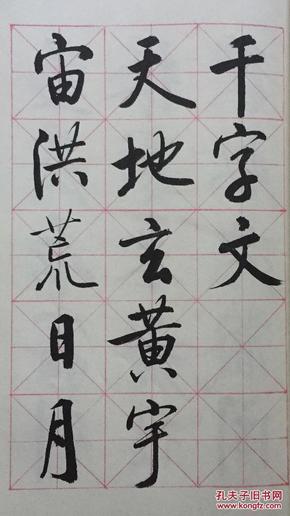 千字文
天地玄黄宇
宙洪荒日月
孔夫子旧书网
www.kongfz.com